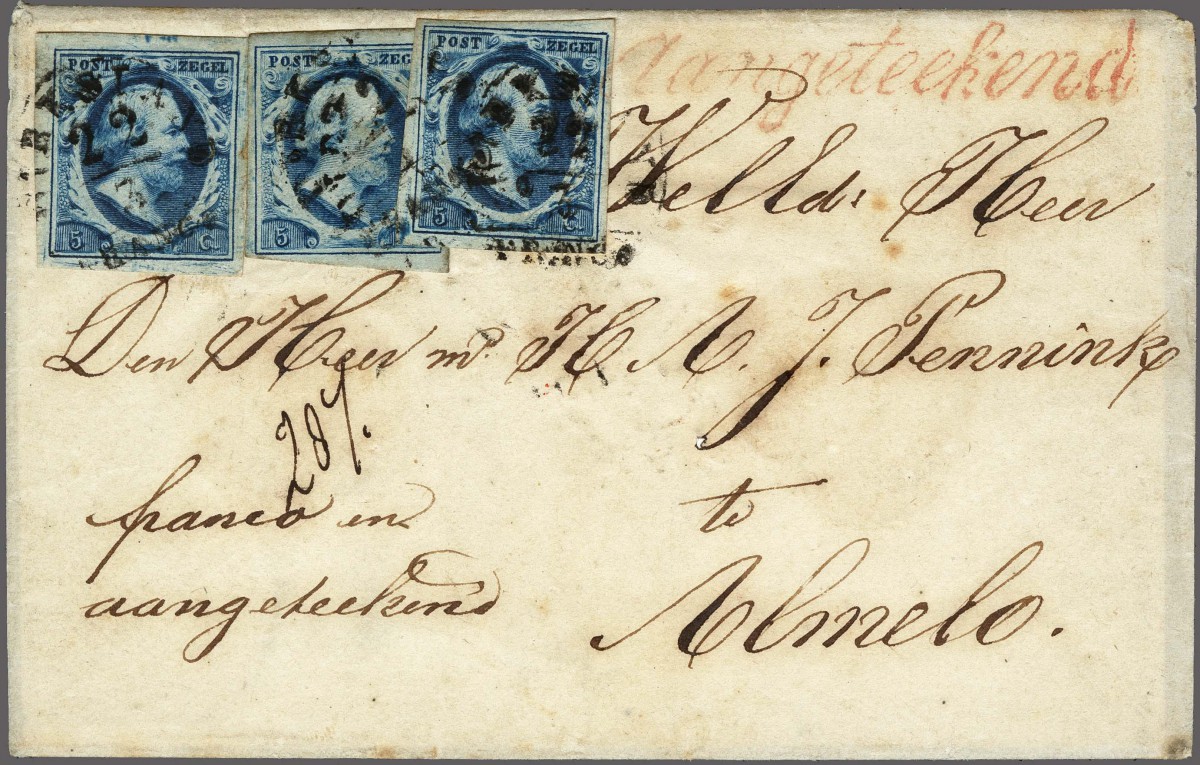 POST ZEGEL POST ZEGEL POST ZEGEL
5 C. 5 5 C.
Aangeteekend
FRANCO
WellEd: Heer
Den Heer mr. H A. J. Pennink
287.
franco en
aangeteekend
te
Almelo.